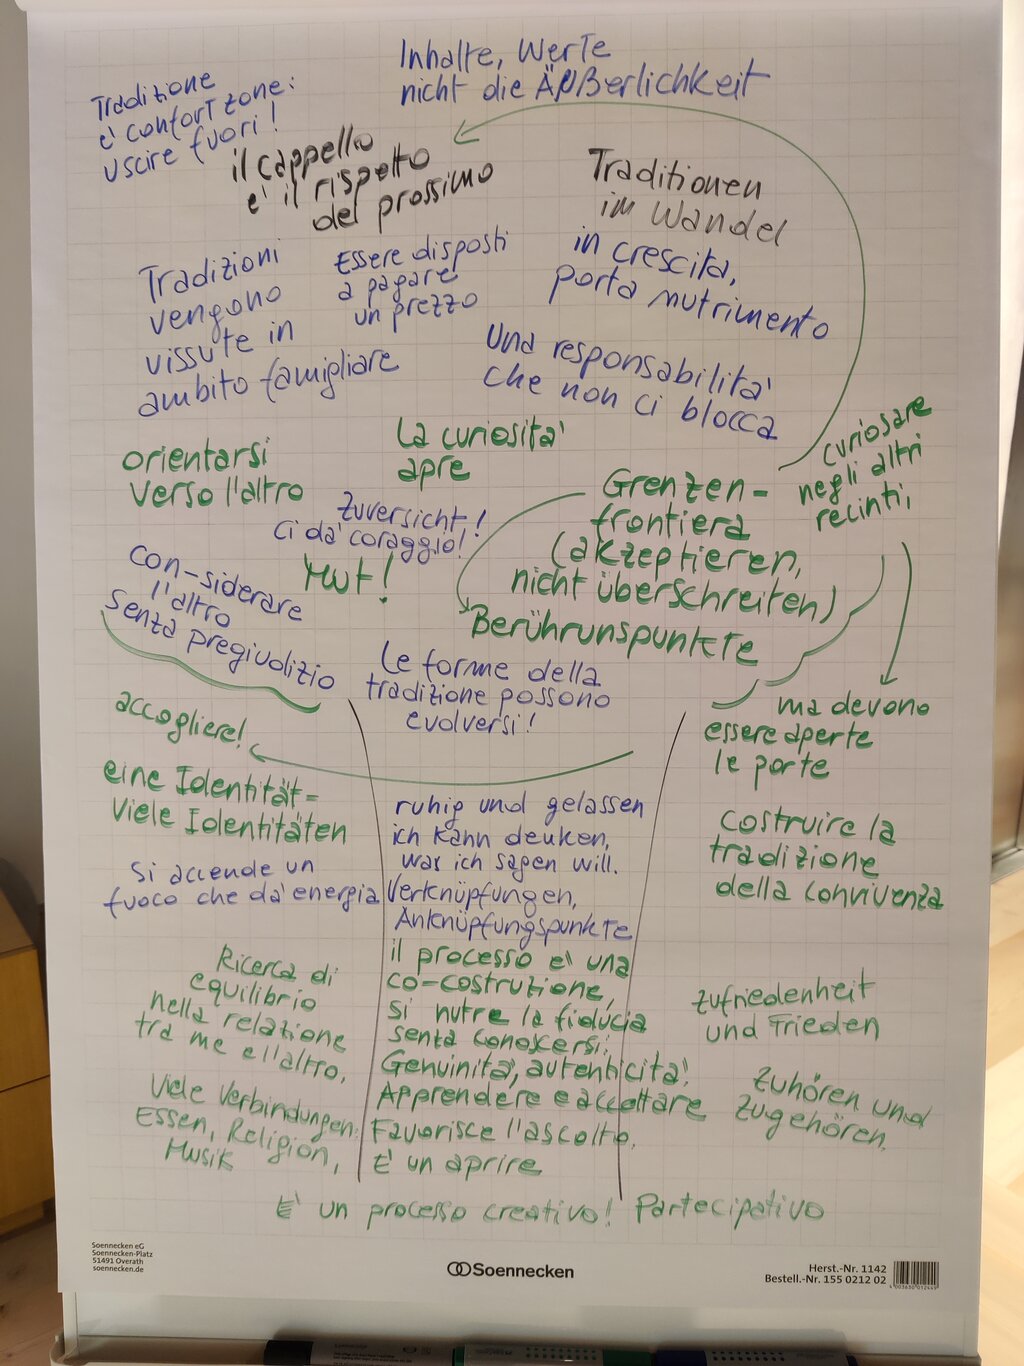 Inhalte, Werte
nicht die Äußerlichkeit
Tradizione
e' confort zone:
uscire fuori!
il cappello
e' il rispetto
del prossimo
Traditionen
im Wandel
in crescita,
porta nutrimento
Tradizioni
vengono
vissute in
ambito famigliare
Essere disposti
a pagare
un prezzo
Una responsabilita'
che non ci blocca
orientarsi
verso l'altro
La curiosita'
apre
Zuversicht!
ci da' coraggio!
Mut!
Grenzen-
frontiera
(akzeptieren,
nicht überschreiten)
Berührunspunkte
curiosare
negli altri
recinti,
con-siderare
l'altro
senza pregiudizio
Le forme della
tradizione possono
evolversi!
ma devono
essere aperte
le porte
accogliere!
eine Identität =
Viele Identitäten
si accende un
fuoco che da' energia
ruhig und gelassen
ich kann denken,
was ich sagen will.
Verknüpfungen,
Anknüpfungspunkte
il processo e' una
co-costruzione,
si nutre la fiducia
senza conoscersi,
Genuinita', autenticita'.
Apprendere e accettare
Favorisce l'ascolto,
E' un aprire
costruire la
tradizione
della convivenza
Ricerca di
equilibrio
nella relazione
tra me e l'altro,
Zufriedenheit
und Frieden
Viele Verbindungen:
Essen, Religion,
Musik
Zuhören und
zugehören,
E' un processo creativo! Partecipativo
Soennecken eG
Soennecken-Platz
51491 Overath
soennecken.de
Soennecken
Herst.-Nr. 1142
Bestell.-Nr. 155 0212 02